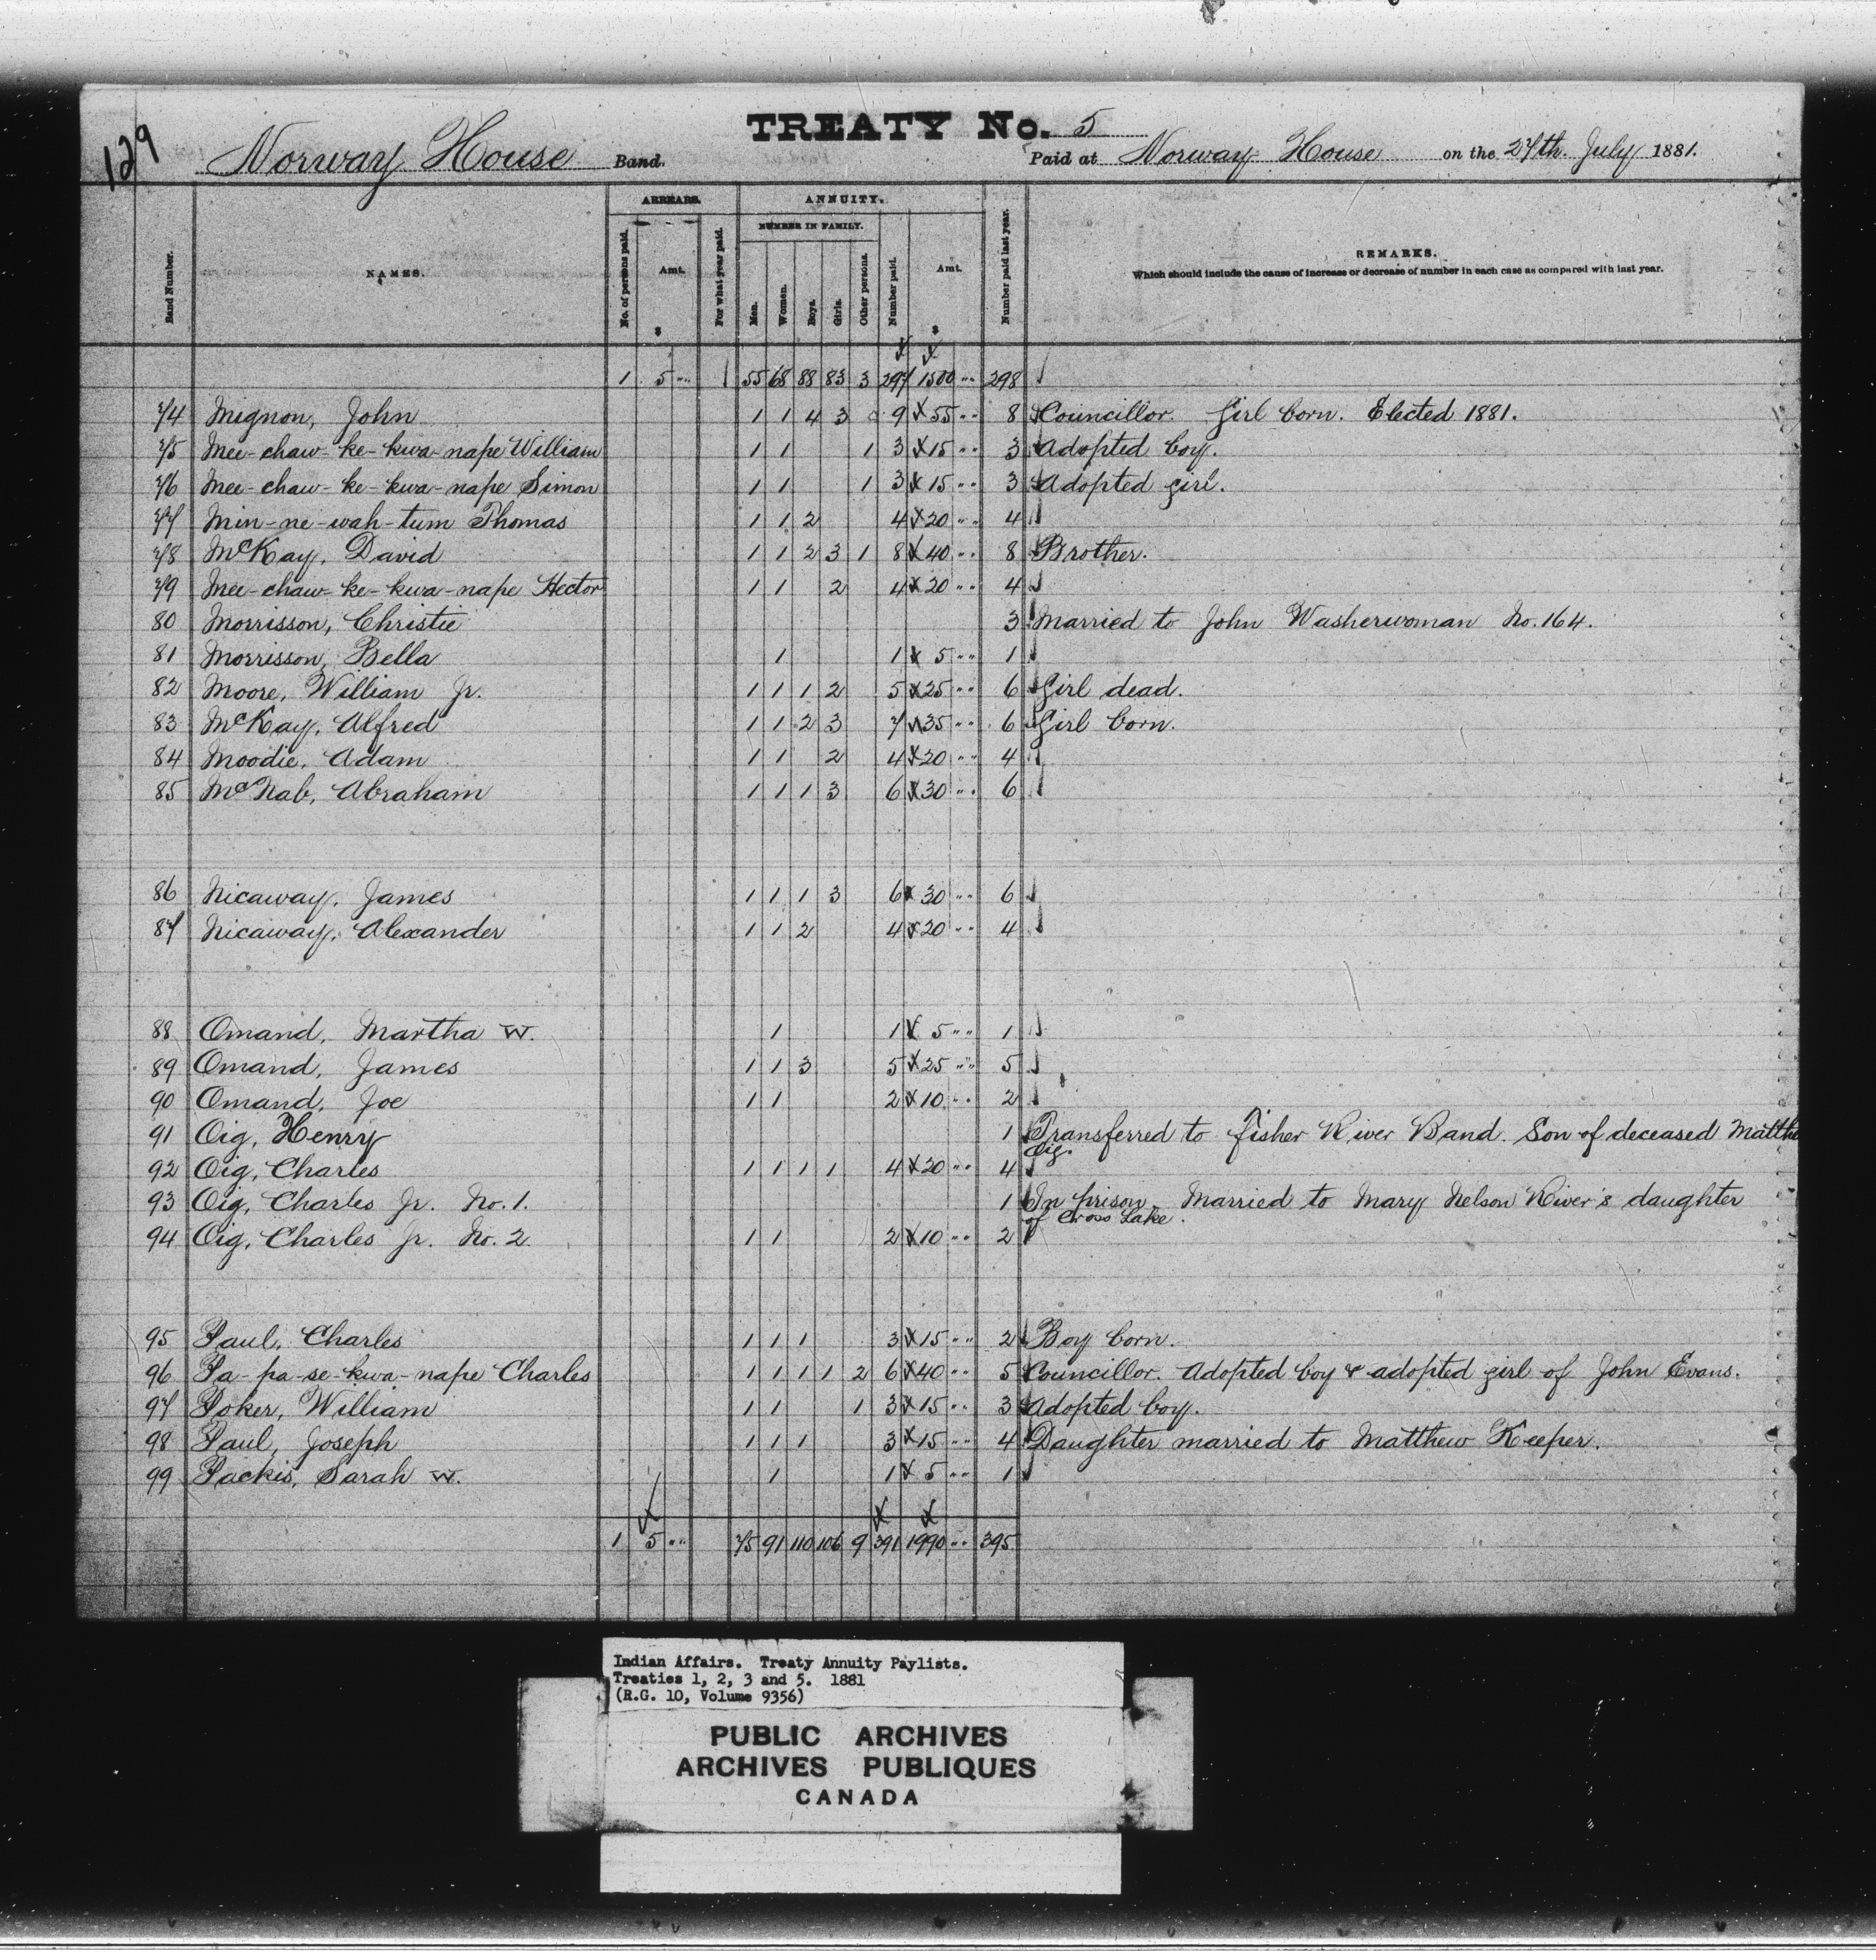 129
TREATY No. 5
Norway House Band. Paid at Norway House on the 27th. July 1881.
ARREARS. ANNUITY.
NUMBER IN FAMILY.
Band Number. NAMES. No. of persons paid. Amt. $ For what year paid. Men. Women. Boys. Girls. Other persons. Number paid. Amt. $ Number paid last year. REMARKS.
Which should include the cause of increase or decrease of number in each case as compared with last year.
1 5 " 55 68 88 83 3 297 1500 " 298
74 Mignon, John 1 1 4 3 9 55 " 8 Councillor. Girl born. Elected 1881.
75 Mee-chaw-ke-kwa-nape William 1 1 1 3 15 " 3 Adopted boy.
76 Mee-chaw-ke-kwa-nape Simon 1 1 1 3 15 " 3 Adopted girl.
77 Min-ne-wah-tum Thomas 1 1 2 4 20 " 4
78 McKay, David 1 1 2 3 1 8 40 " 8 Brother.
79 Mee-chaw-ke-kwa-nape Hector 1 1 2 4 20 " 4
80 Morrisson, Christie 3 Married to John Washerwoman No. 164.
81 Morrisson, Bella 1 1 5 " 1
82 Moore, William Jr. 1 1 1 2 5 25 " 6 Girl dead.
83 McKay, Alfred 1 1 2 3 7 35 " 6 Girl born.
84 Moodie, Adam 1 1 2 4 20 " 4
85 McNab, Abraham 1 1 1 3 6 30 " 6
86 Nicaway, James 1 1 1 3 6 30 " 6
87 Nicaway, Alexander 1 1 2 4 20 " 4
88 Omand, Martha W. 1 1 5 " 1
89 Omand, James 1 1 3 5 25 " 5
90 Omand, Joe 1 1 2 10 " 2
91 Oig, Henry 1 Transferred to Fisher River Band. Son of deceased Matthe
Oig.
92 Oig, Charles 1 1 1 1 4 20 " 4
93 Oig, Charles Jr. No. 1. 1 In prison. Married to Mary Nelson River's daughter
of Cross Lake.
94 Oig, Charles Jr. No. 2. 1 1 2 10 " 2
95 Paul, Charles 1 1 1 3 15 " 2 Boy born.
96 Pa-pa-se-kwa-nape Charles 1 1 1 1 2 6 40 " 5 Councillor. Adopted boy & adopted girl of John Evans.
97 Poker, William 1 1 1 3 15 " 3 Adopted boy.
98 Paul, Joseph 1 1 1 3 15 " 4 Daughter married to Matthew Keeper.
99 Packis, Sarah W. 1 1 5 " 1
1 5 " 75 91 110 106 9 391 1990 " 395
Indian Affairs. Treaty Annuity Paylists.
Treaties 1, 2, 3 and 5. 1881
(R.G. 10, Volume 9356)
PUBLIC ARCHIVES
ARCHIVES PUBLIQUES
CANADA